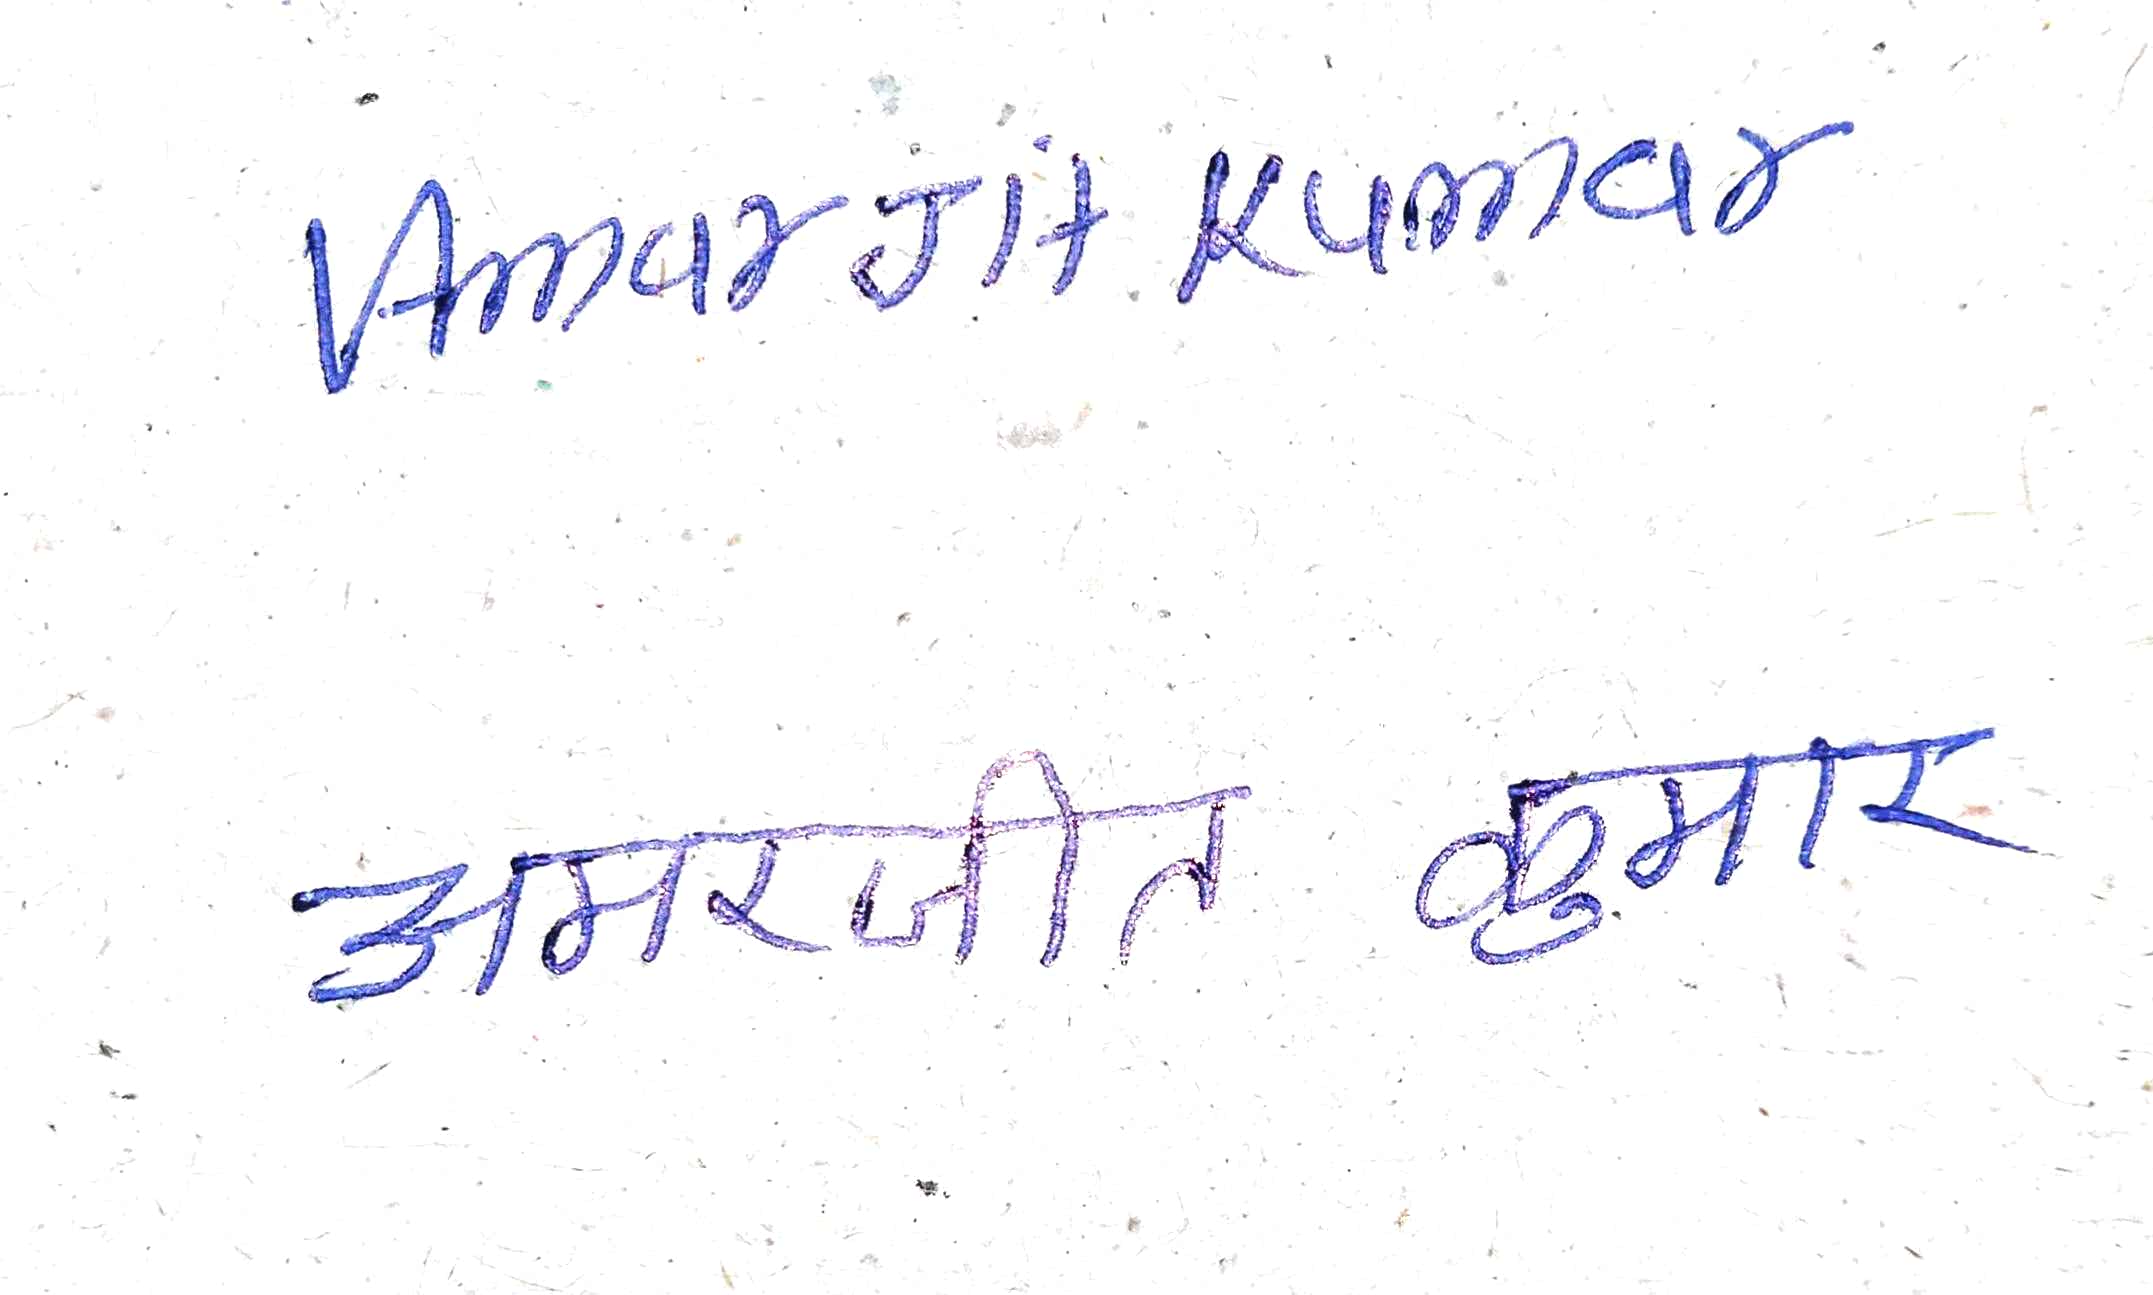 Amarjit Kumar
अमरजीत कुमार